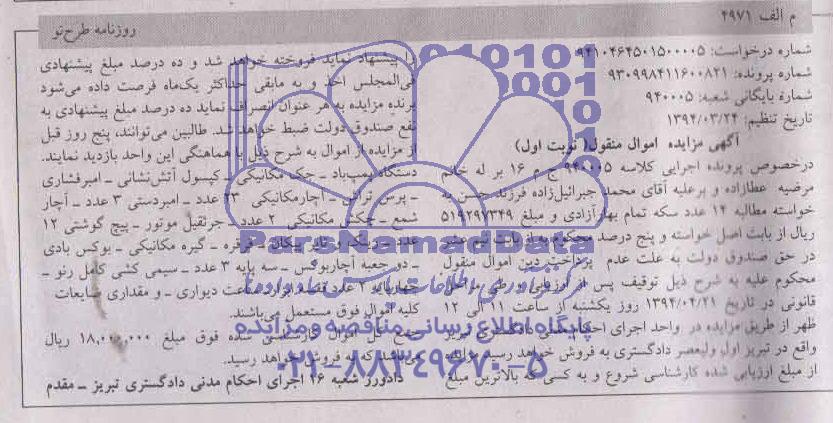 م الف ۴۹۷۱
روزنامه طرح‌نو
شماره درخواست: ۹۴۱۰۴۶۴۵۰۱۵۰۰۰۰۵
شماره پرونده: ۹۳۰۹۹۸۴۱۱۶۰۰۸۲۱
شماره بایگانی شعبه: ۹۴۰۰۰۵
تاریخ تنظیم: ۱۳۹۴/۰۳/۲۴
آگهی مزایده اموال منقول( نوبت اول)
درخصوص پرونده اجرایی کلاسه ۹۴۰۰۰۵ ج م ۱۶ بر له خانم
مرضیه عطازاده و برعلیه آقای محمد جبرائیل‌زاده فرزند حسن به
خواسته مطالبه ۱۴ عدد سکه تمام بهارآزادی و مبلغ ۵۱۹۲۹۷۳۴۹
ریال از بابت اصل خواسته و پنج درصد محکوم به از بابت نیم عشر
در حق صندوق دولت به علت عدم پرداخت دین اموال منقول
محکوم علیه به شرح ذیل توقیف پس از ارزیابی و طی مراحل
قانونی در تاریخ ۱۳۹۴/۰۴/۲۱ روز یکشنبه از ساعت ۱۱ الی ۱۲
ظهر از طریق مزایده در واحد اجرای احکام مدنی دادگستری تبریز
واقع در تبریز اول ولیعصر دادگستری به فروش خواهد رسید مزایده
از مبلغ ارزیابی شده کارشناسی شروع و به کسی که بالاترین مبلغ
را پیشنهاد نماید فروخته خواهد شد و ده درصد مبلغ پیشنهادی
فی‌المجلس اخذ و به مابقی حداکثر یک‌ماه فرصت داده می‌شود
برنده مزایده به هر عنوان انصراف نماید ده درصد مبلغ پیشنهادی به
نفع صندوق دولت ضبط خواهد شد. طالبین می‌توانند، پنج روز قبل
از مزایده از اموال به شرح ذیل با هماهنگی این واحد بازدید نمایند.
دستگاه پمپ‌باد ـ جک مکانیکی ـ کپسول آتش‌نشانی ـ امبرفشاری
ـ پرس ـ آچارمکانیکی ۴۳ عدد ـ امبردستی ۳ عدد ـ آچار
شمع ـ چکش مکانیکی ۲ عدد ـ جرثقیل موتور ـ پیچ گوشتی ۱۲
عدد ـ رینگ و تایر پیکان ـ قرقره ـ گیره مکانیکی ـ بوکس بادی
ـ دو جعبه آچاربوکس ـ سه پایه ۳ عدد ـ سیمی کشی کامل رنو ـ
چهارپایه ۲ عدد قفسه ابزار ـ ساعت دیواری ـ و مقداری ضایعات
کلیه اموال فوق مستعمل می‌باشند.
جمع کل اموال کارشناسی شده فوق مبلغ ۱۸،۰۰۰،۰۰۰ ریال
می‌باشد که به فروش خواهد رسید.
دادورز شعبه ۱۶ اجرای احکام مدنی دادگستری تبریز ـ مقدم
ParsNamadData
پایگاه اطلاع رسانی مناقصه و مزایده
۰۲۱-۸۸۳۴۹۶۷۰-۵